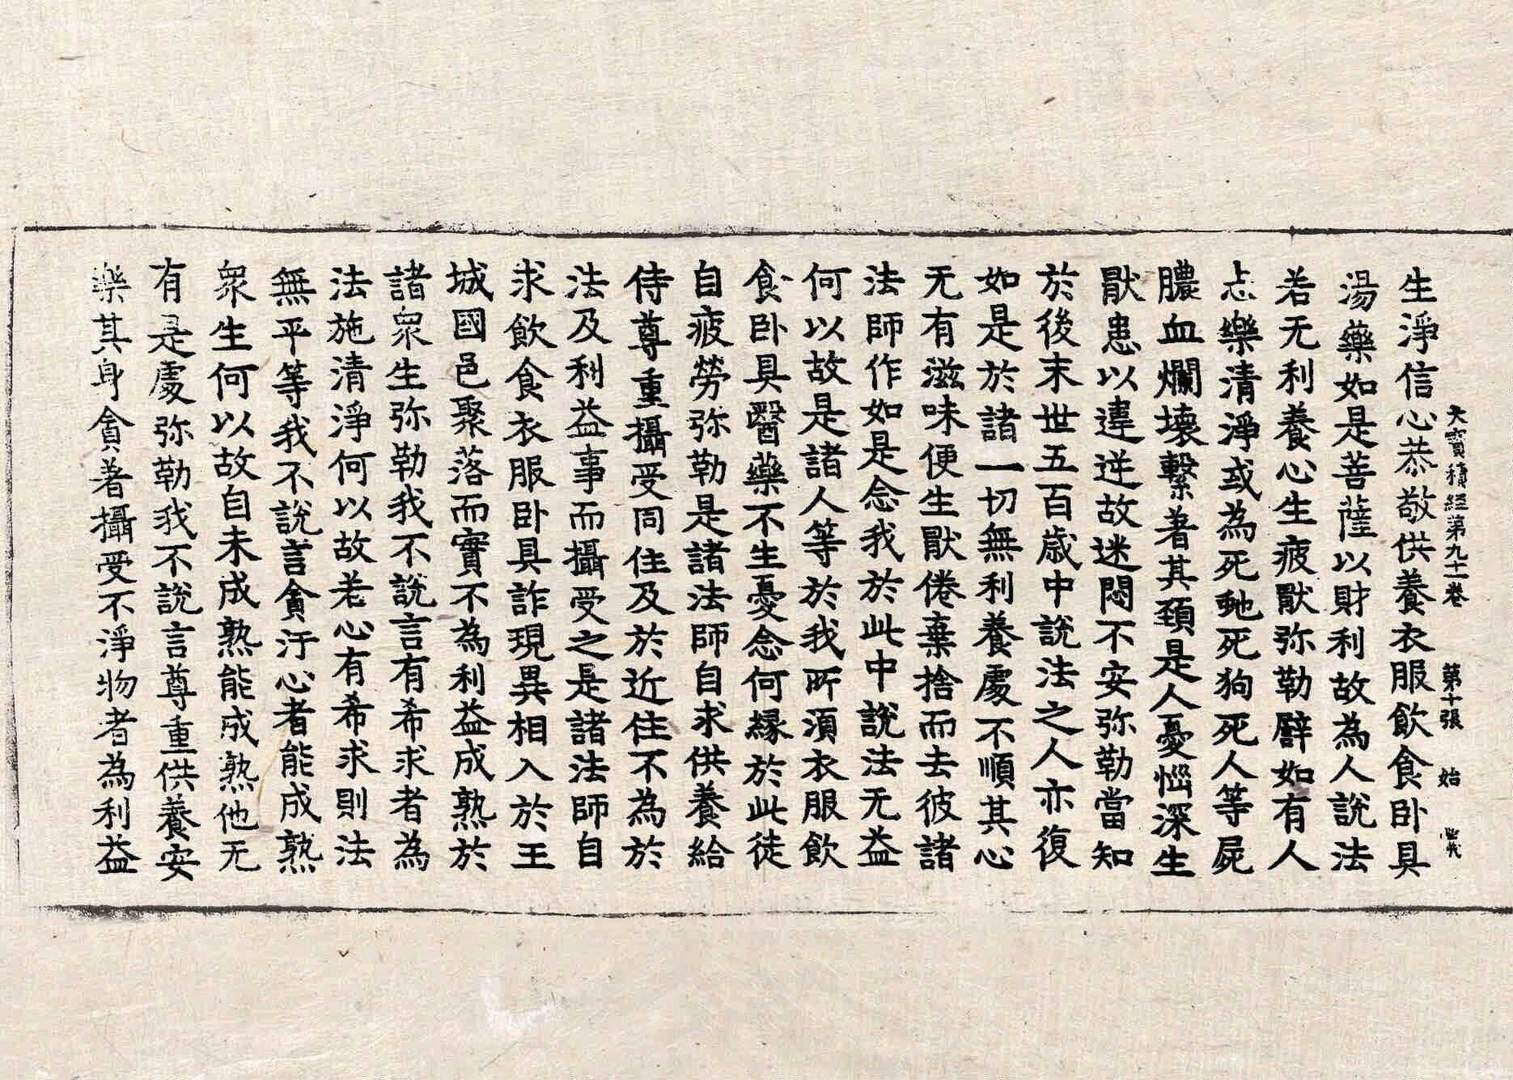 大寶積經第九十一卷 第十張 始
生淨信心恭敬供養衣服飲食卧具
湯藥如是菩薩以財利故為人說法
若无利養心生疲猒弥勒譬如有人
志樂清淨或為死虵死狗死人等屍
膿血爛壞繫著其頸是人憂惱深生
猒患以違逆故迷悶不安弥勒當知
於後末世五百歲中說法之人亦復
如是於諸一切無利養處不順其心
无有滋味便生猒倦棄捨而去彼諸
法師作如是念我於此中說法无益
何以故是諸人等於我所湏衣服飲
食卧具醫藥不生憂念何緣於此徒
自疲勞弥勒是諸法師自求供養給
侍尊重攝受同住及於近住不為於
法及利益事而攝受之是諸法師自
求飲食衣服卧具詐現異相入於王
城國邑聚落而實不為利益成熟於
諸衆生弥勒我不說言有希求者為
法施清淨何以故若心有希求則法
無平等我不說言貪汙心者能成熟
衆生何以故自未成熟能成熟他无
有是處弥勒我不說言尊重供養安
樂其身貪著攝受不淨物者為利益